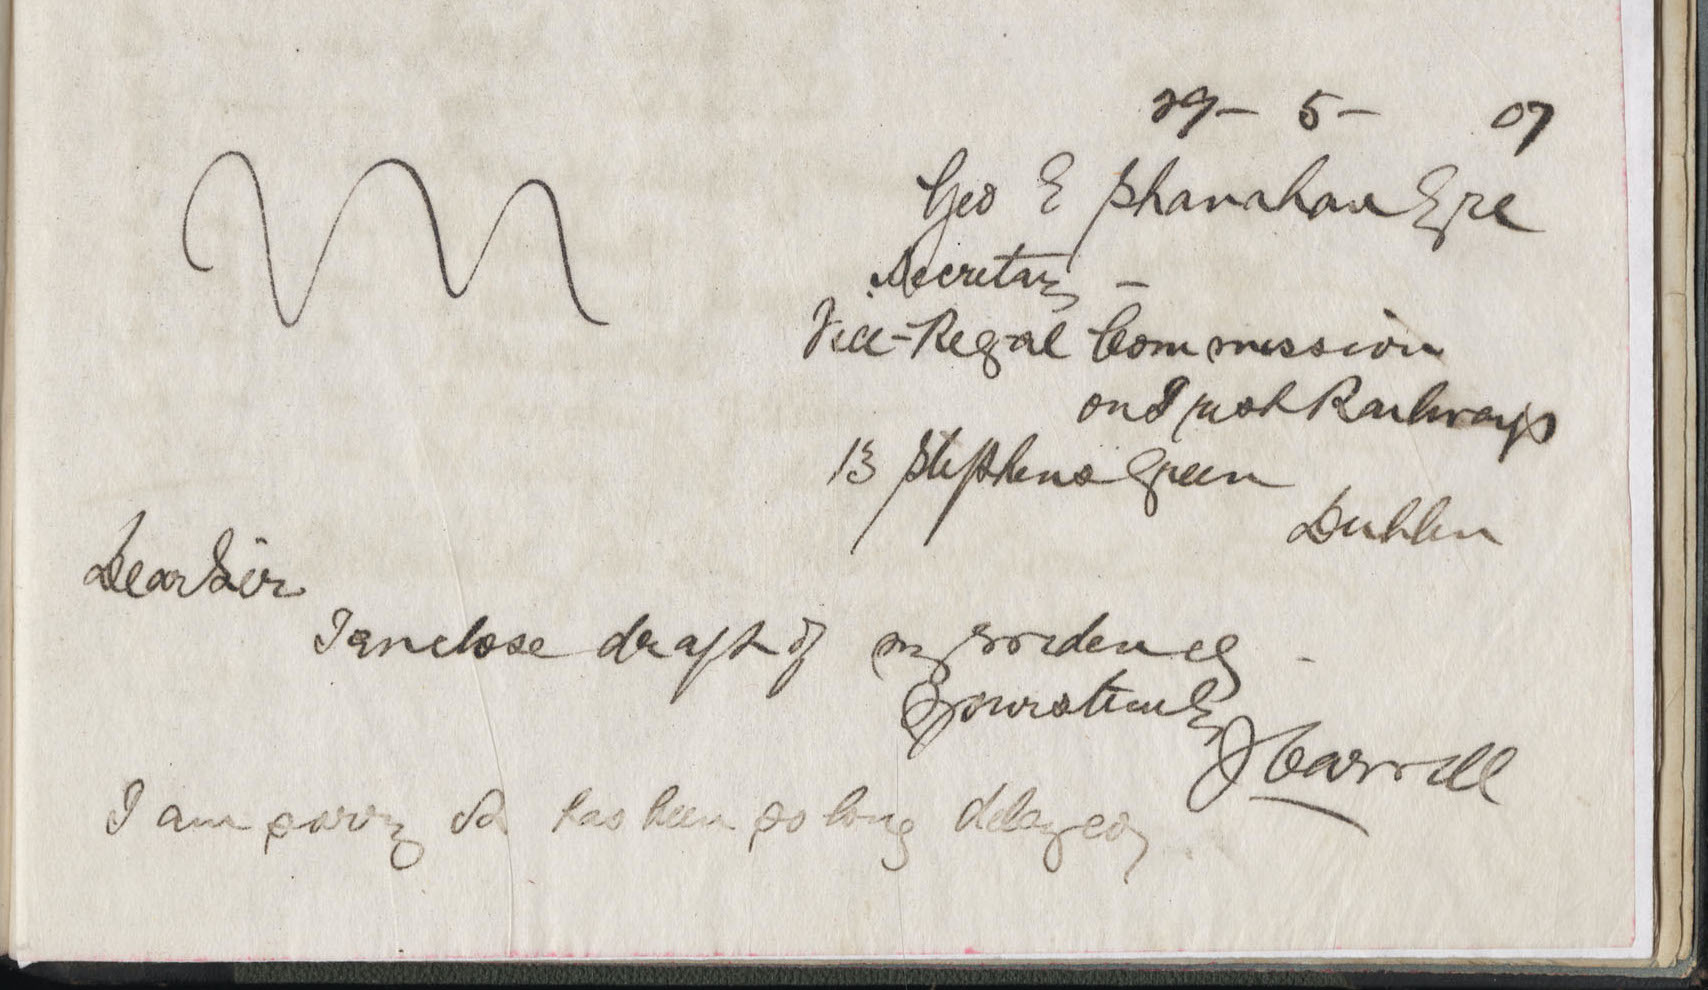 29 - 5 - 07
Geo E Shanahan Esqre
Secretary -
Vice-Regal Commission
on Irish Railways
13 Stephens Green
Dublin
Dear Sir
I enclose draft of my evidence
Yours truly
J Carroll
I am sorry it has been so long delayed